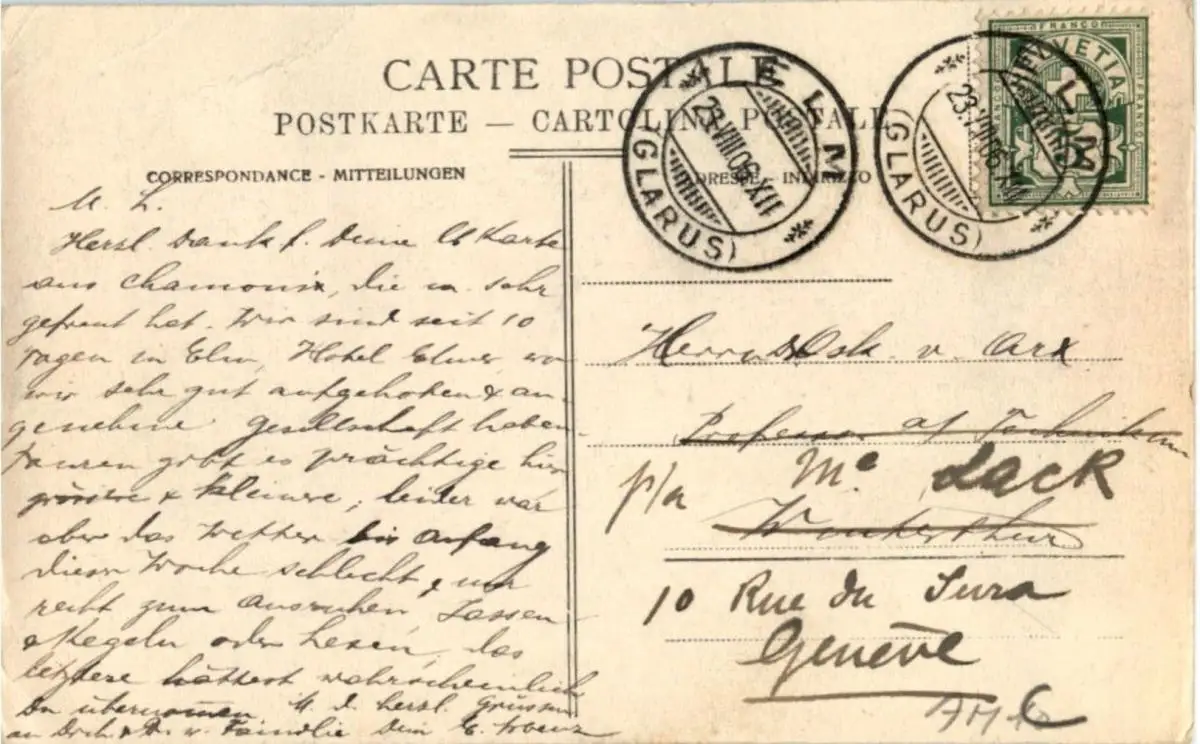 CARTE POSTALE
POSTKARTE — CARTOLINA POSTALE
CORRESPONDANCE - MITTEILUNGEN
ADRESSE - INDIRIZZO
ELM
(GLARUS)
23.VIII.06.XII
ELM
(GLARUS)
23.VIII.06.XII
FRANCO
HELVETIA
FRANCO
FRANCO
M. L.
Herzl. Dank f. Deine Karte
aus Chamonix, die m. sehr
gefreut hat. Wir sind seit 10
Tagen in Elm, Hotel Elmer, wo
wir sehr gut aufgehoben & an-
genehme Gesellschaft haben.
Touren gibt es prächtige hier
grössere & kleinere, leider war
aber das Wetter bis anfang
dieser Woche schlecht & nur
recht zum Ausruhen, Jassen
& Kegeln oder Lesen, das
letztere hättest wahrscheinlich
Du übernommen M. d. herzl. Grüssen
an Dich & Familie Dein E.
Herrn Osk. v. Arx
Professor a/ Technikum
p/a Me. Lack
Winterthur
10 Rue du Jura
Genève